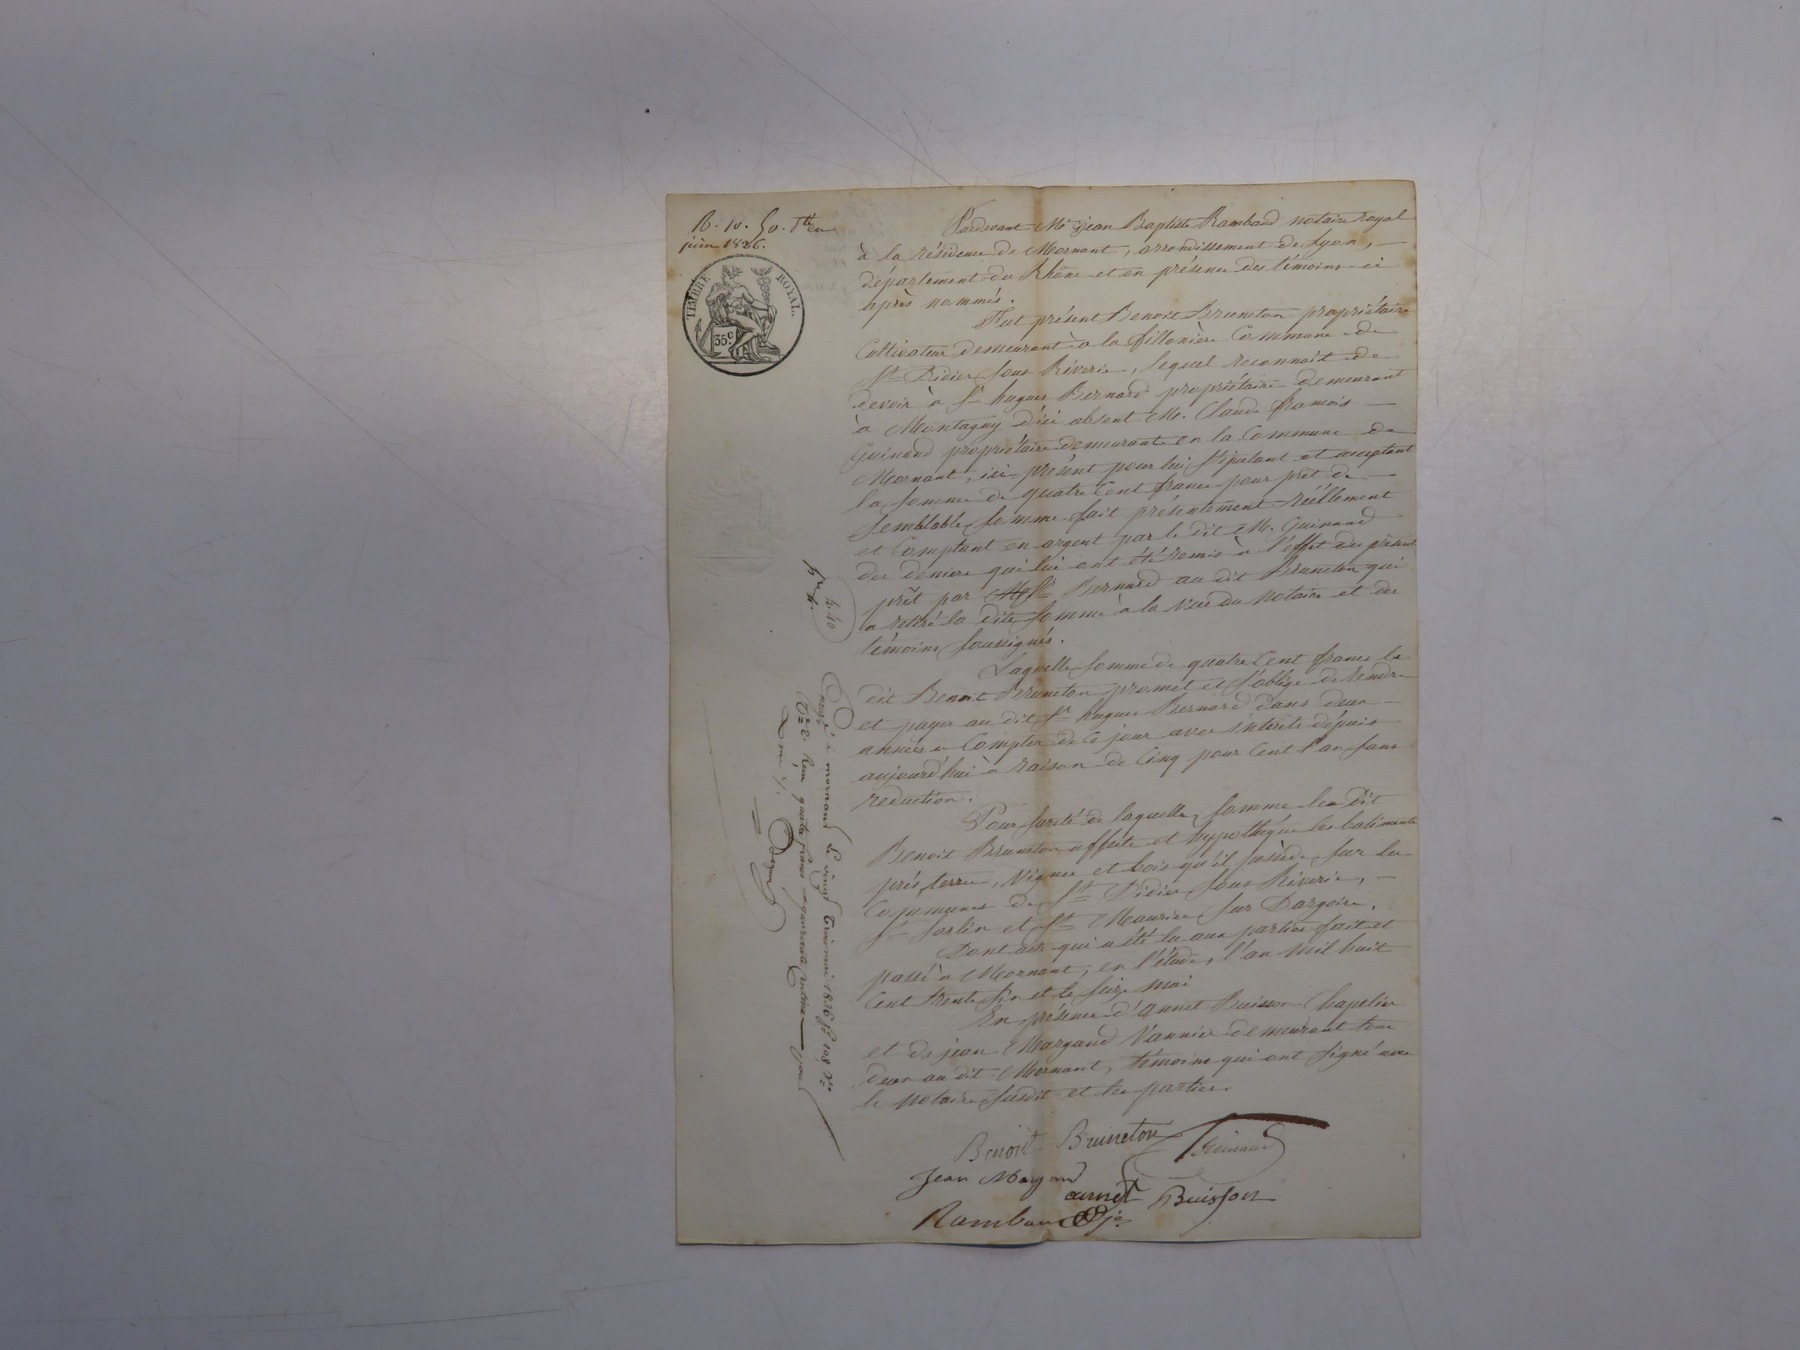 juin 1836.
TIMBRE ROYAL.
35 c
Pardevant Me jean Baptiste Rambaud notaire royal
à la résidence de Mornant, arrondissement de Lyon,
département du Rhône et en présence des témoins ci
après nommés.
Fut présent Benoit Bruneton propriétaire
Cultivateur demeurant à la fillonière Commune de
St Didier sous Riverie, lequel reconnait de
devoir à Sr hugues Bernard propriétaire demeurant
à Montagny d'ici absent M. Claude francois
Guinand propriétaire demeurant en la Commune de
Mornant, ici présent pour lui stipulant et acceptant
la somme de quatre Cent francs pour prêt de
semblable somme fait présentement réellement
et Comptant en argent par le dit M. Guinand
des deniers qui lui ont été remis à l'effet du présent
prêt par Sr Bernard au dit Bruneton qui
a retiré la dite somme à la vue du notaire et des
témoins soussignés.
Laquelle somme de quatre Cent francs le
dit Benoit Bruneton promet et s'oblige de rendre
et payer au dit Sr hugues Bernard dans deux
années à Compter de Ce jour avec intérêts dépuis
aujourd'hui à raison de Cinq pour Cent l'an sans
réduction.
Pour sureté de laquelle somme le dit
Benoit Bruneton affecte et hypothèque les batiments
prés, terres, vignes et bois qu'il possède sur les
Communes de St Didier sous Riverie,
St Sorlin et St Maurice sur Dargoire.
Dont acte qui a été lu aux parties fait et
passé à Mornant, en l'étude, l'an mil huit
Cent trente six et le seize mai
En présence d'annet Buisson Chapelier
et de jean Margand Vannier demeurant tous
deux au dit Mornant, témoins qui ont signé avec
le notaire susdit et les parties.
4.40
Enregé à mornant Le vingt trois mai 1836 fo 108 Vo
Reçu quatre francs quarante centimes
Benoit Bruneton Guinand
Jean Margand
annet Buisson
Rambaud